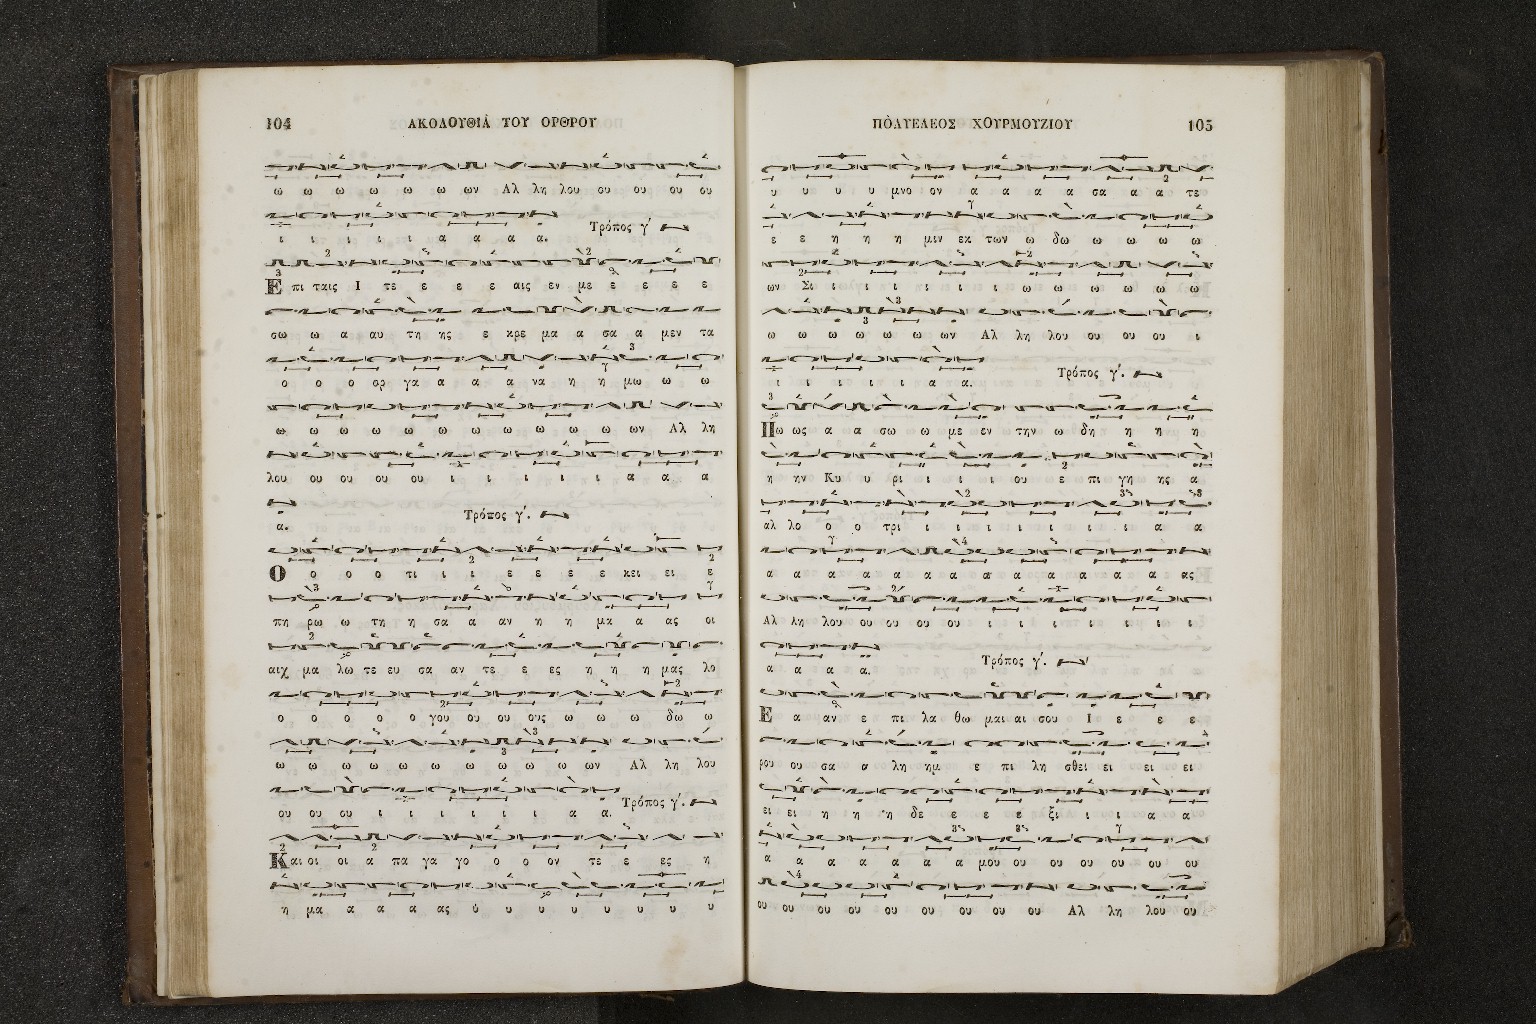 104 ΑΚΟΛΟΥΘΙΑ ΤΟΥ ΟΡΘΡΟΥ
ω ω ω ω ω ω ων Αλ λη λου ου ου ου ου
ι ι ι ι ι α α α α. Τρόπος γ΄
Ε πι ταις Ι τε ε ε ε αις εν με ε ε ε ε
σω ω α αυ τη ης ε κρε μα α σα α μεν τα
ο ο ο ορ γα α α α να η η μω ω ω
ω ω ω ω ω ω ω ω ω ω ω ων Αλ λη
λου ου ου ου ου ι ι ι ι ι α α α
α. Τρόπος γ΄.
Ο ο ο ο τι ι ι ε ε ε ε κει ει ε
πη ρω ω τη η σα α αν η η μα α ας οι
αιχ μα λω τε ευ σα αν τε ε ες η η η μας λο
ο ο ο ο ο γου ου ου ους ω ω ω δω ω
ω ω ω ω ω ω ω ω ω ω ων Αλ λη λου
ου ου ου ι ι ι ι ι ι α α. Τρόπος γ΄.
Και οι οι α πα γα γο ο ο ον τε ε ες η
η μα α α α ας ύ υ υ υ υ υ υ υ
ΠΟΛΥΕΛΕΟΣ ΧΟΥΡΜΟΥΖΙΟΥ 105
υ υ υ υ μνο ον α α α α σα α α τε
ε ε η η η μιν εκ των ω δω ω ω ω ω
ων Σι ι ι ι ι ι ι ω ω ω ω ω ω
ω ω ω ω ω ω ων Αλ λη λου ου ου ου ι
ι ι ι ι ι α α. Τρόπος γ΄.
Πω ως α α σω ω με εν την ω δη η η η
η ην Κυ υ ρι ι ι ι ου ε πι γη ης α
αλ λο ο ο τρι ι ι ι ι ι ι ι α α
α α α α α α α α α α α α α ας
Αλ λη λου ου ου ου ου ι ι ι ι ι ι ι
α α α α. Τρόπος γ΄.
Ε α αν ε πι λα θω μαι αι σου Ι ε ε ε
ρου ου σα α λη ημ ε πι λη σθει ει ει ει
ει ει η η η δε ε ε ε ξι ι ι α α
α α α α α α α μου ου ου ου ου ου ου
ου ου ου ου ου ου ου ου ου Αλ λη λου ου